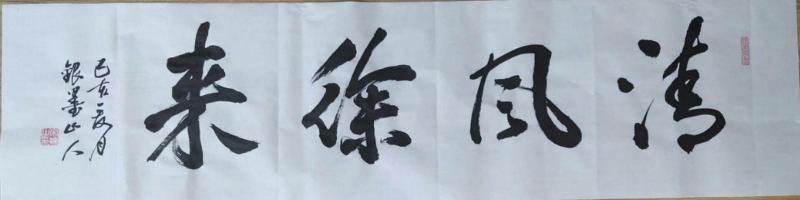 清风徐来
己亥夏月
银墨山人